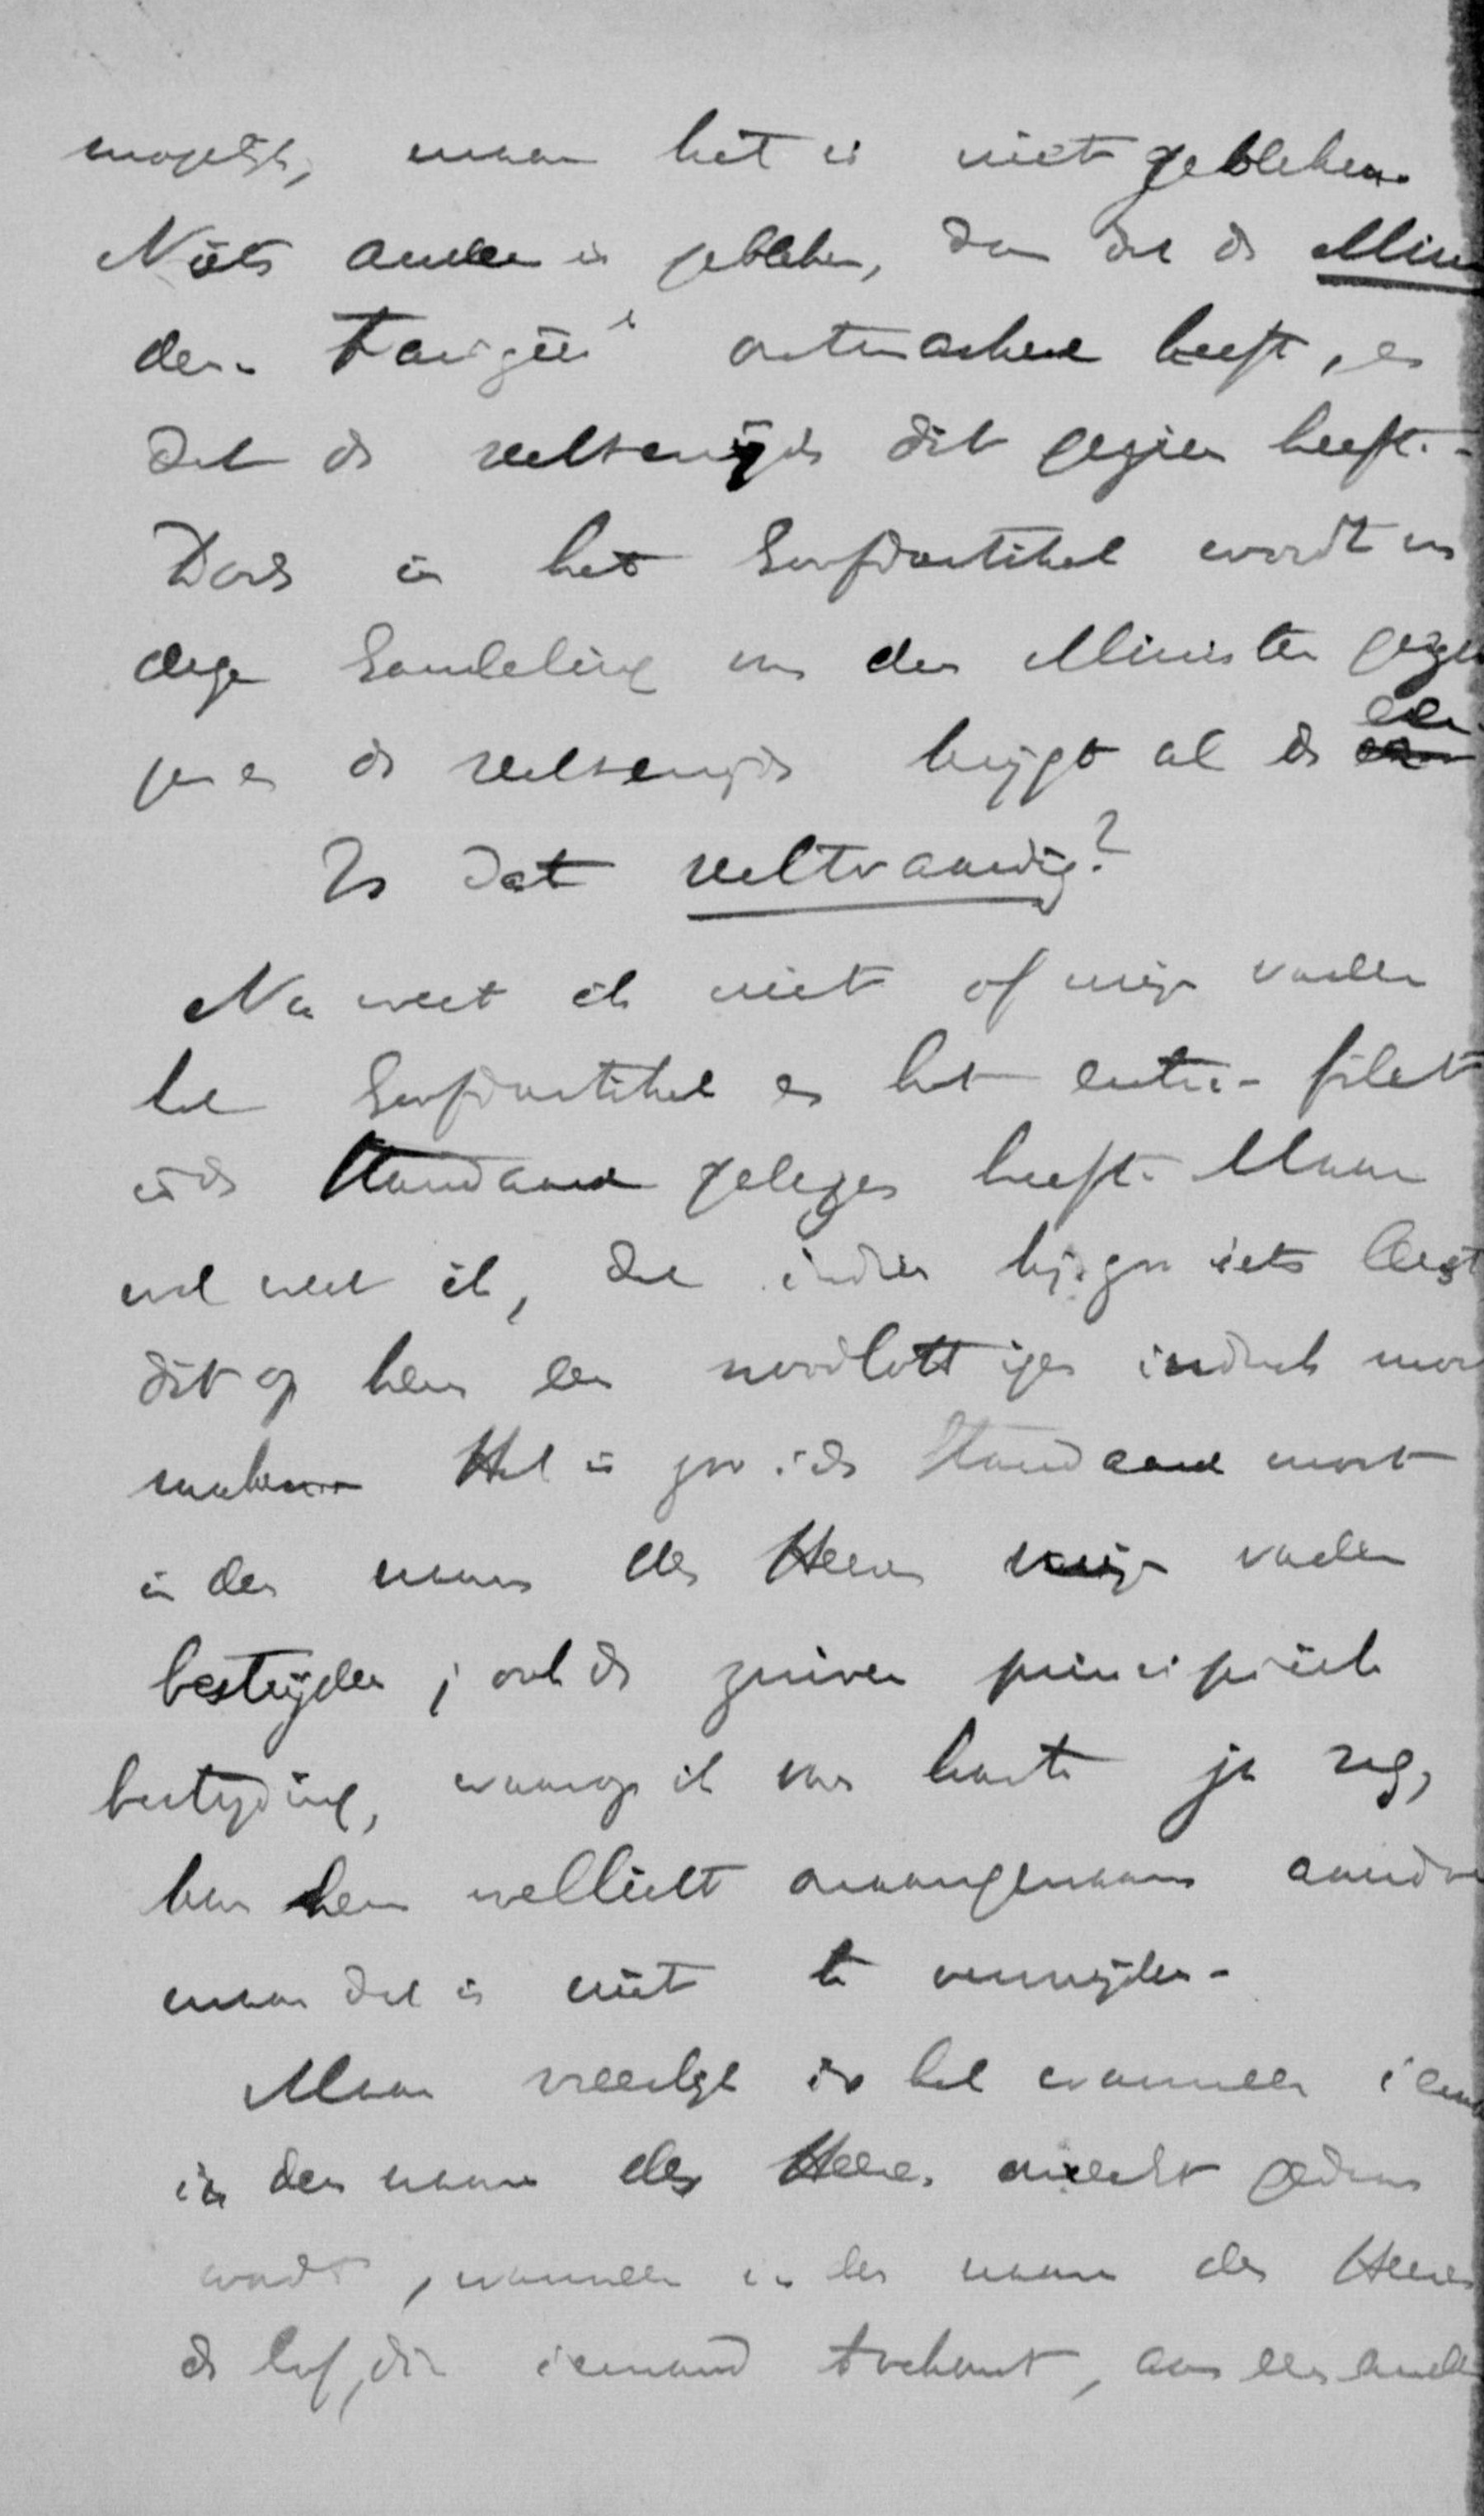 mogelijk, maar het is niet gebleken.
Niets anders is gebleken, dan dat de Minis
den                  heeft, en
dat de rechtzijde dit gezien heeft.
Doch in het hoofdartikel wordt
deze handeling van den Minister
en de rechtzijde krijgt al de eer.
Is dat rechtvaardig?
Nu weet ik niet of mijn vader
het hoofdartikel en het entre-filet
in de Standaard gelezen heeft. Maar
wel weet ik, dat indien hij zoo iets leest
dit op hem een noodlottigen indruk moet
maken. Het is zoo: de Standaard moet
in den naam des Heeren mijn vader
bestrijden; ook de zuiver principieele
bestrijding, waarop ik van harte ja zeg,
kan hem wellicht onaangenaam aandoen
maar dat is niet te vermijden.
Maar vreeselijk is het wanneer iemand
in den naam des Heeren onrecht gedaan
wordt, wanneer in den naam des Heeren
de lof, die iemand toekomt, aan een ander